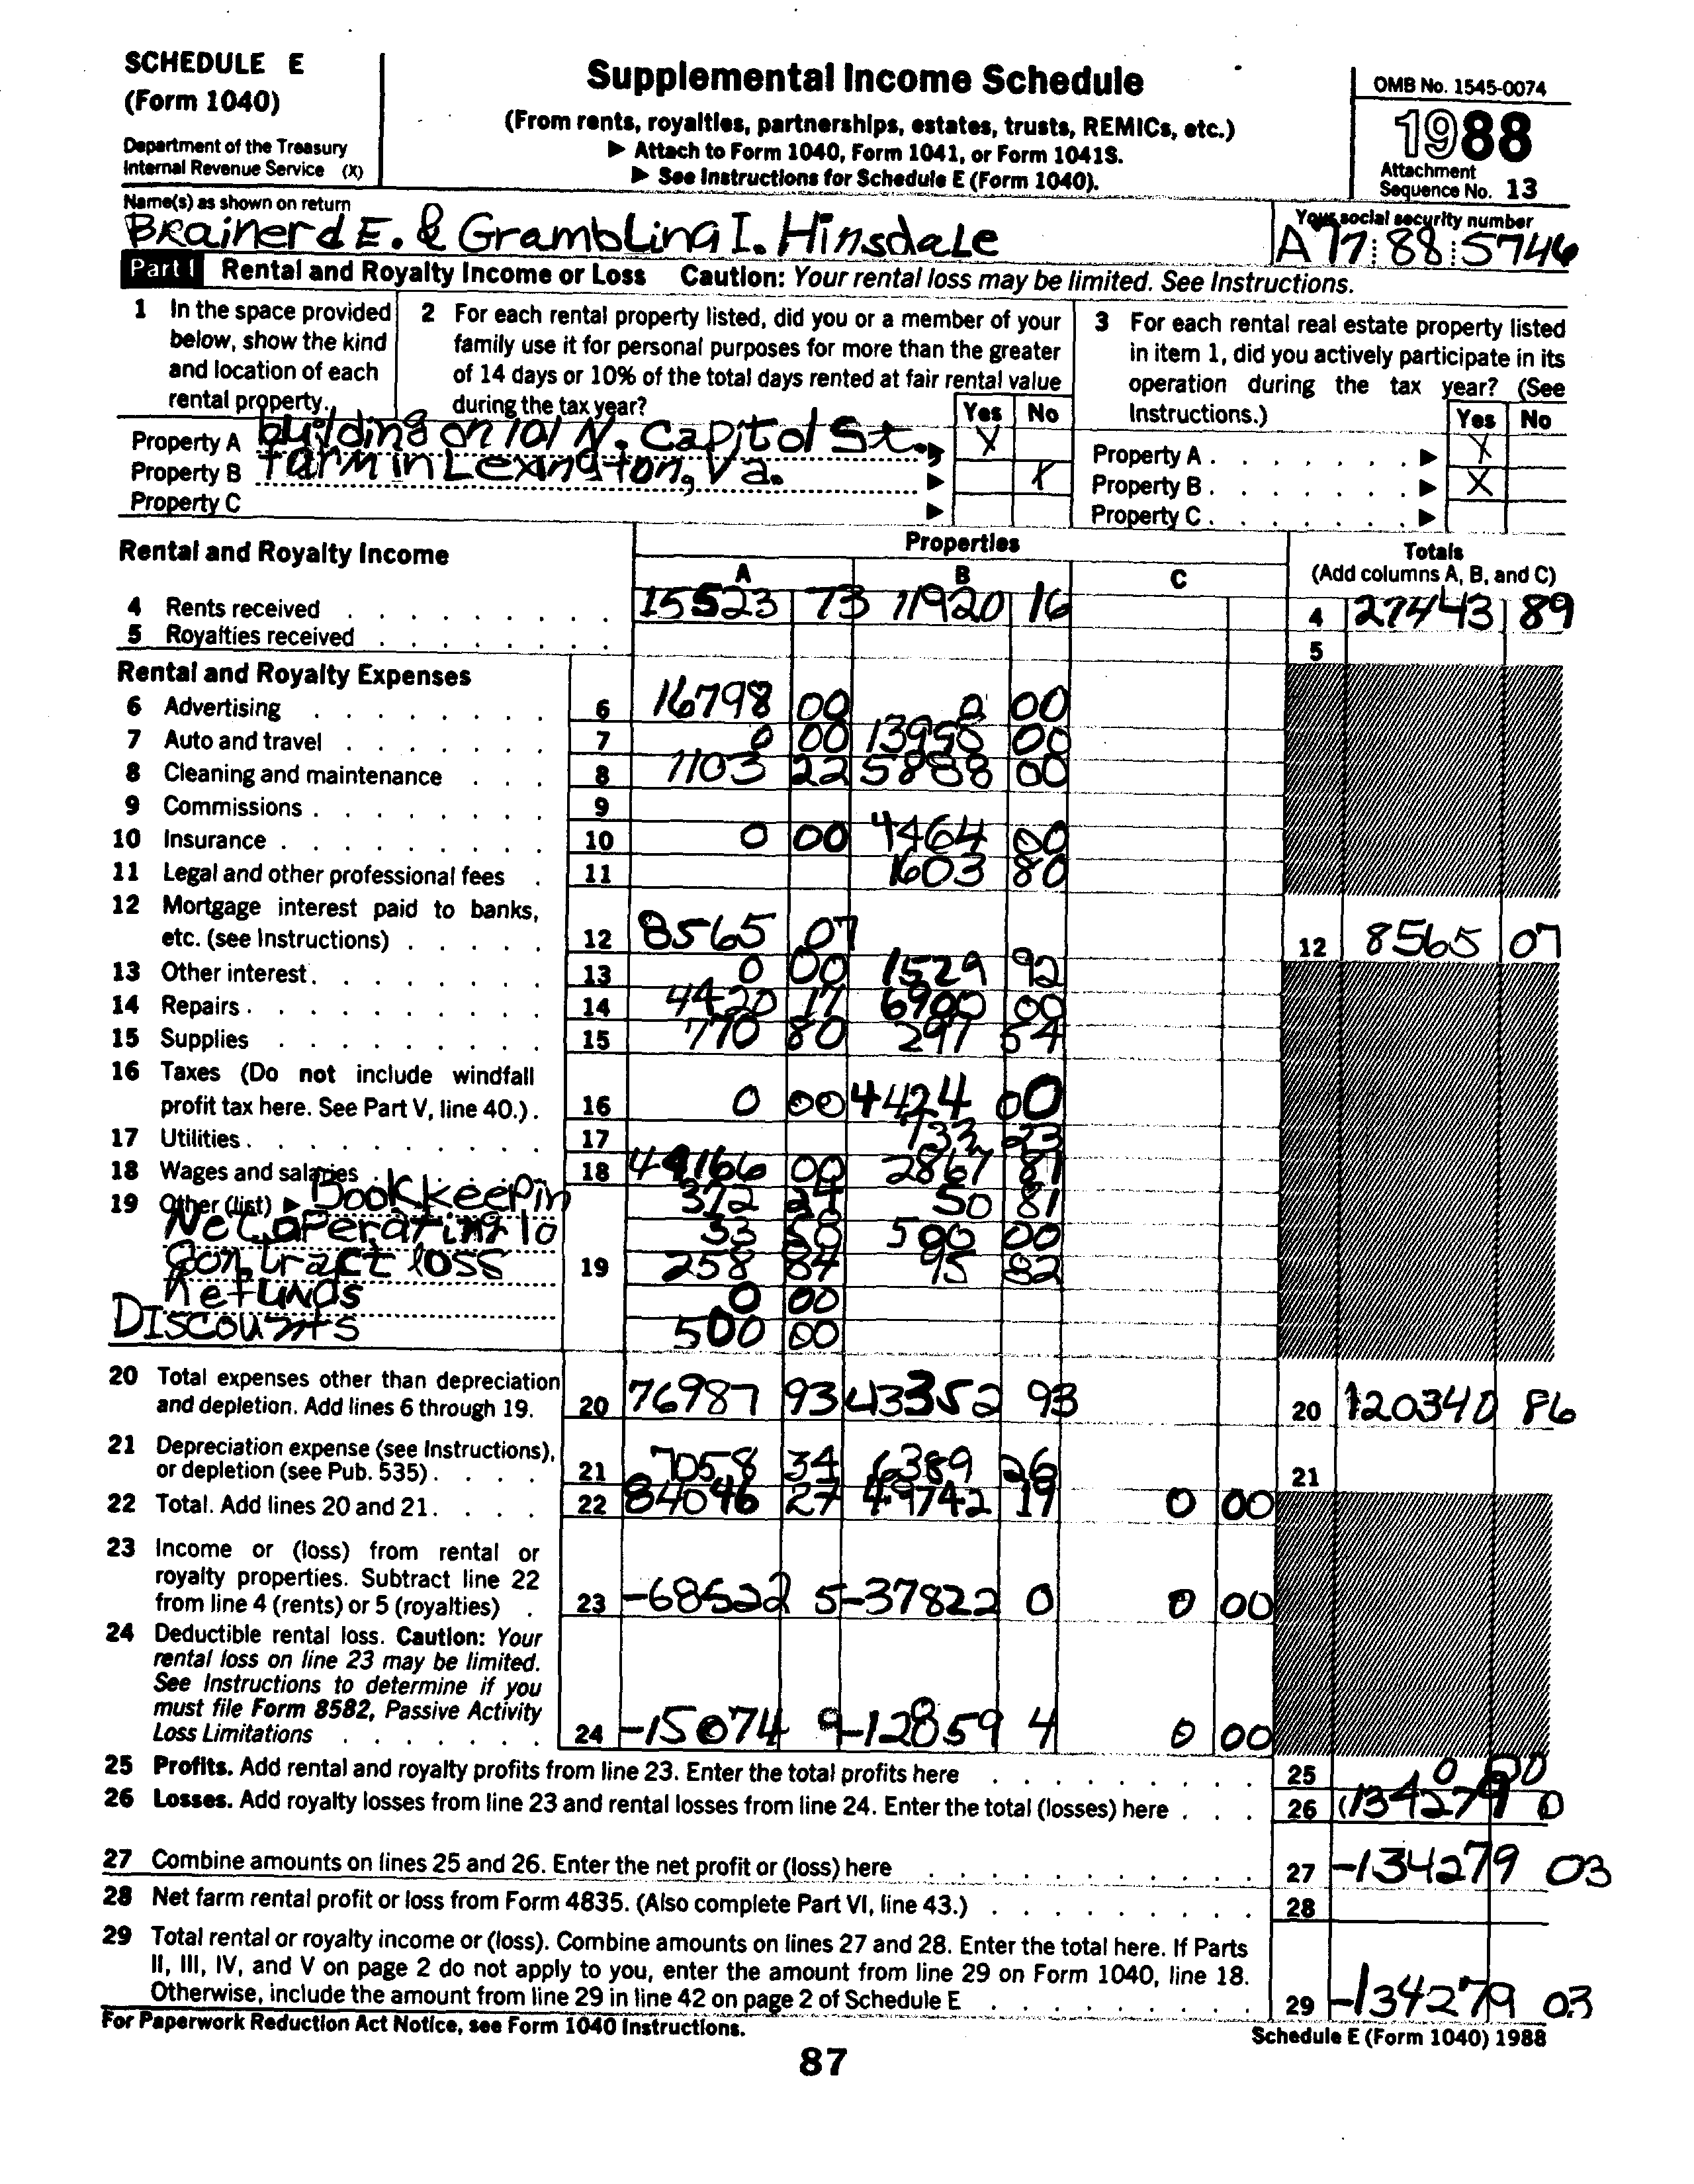 SCHEDULE E
(Form 1040)
Department of the Treasury
Internal Revenue Service (X)
Supplemental Income Schedule
(From rents, royalties, partnerships, estates, trusts, REMICs, etc.)
▶ Attach to Form 1040, Form 1041, or Form 1041S.
▶ See Instructions for Schedule E (Form 1040).
OMB No. 1545-0074
1988
Attachment
Sequence No. 13
Name(s) as shown on return
Brainerd E. & Grambling I. Hinsdale
Your social security number
A77 88 5746
Part I Rental and Royalty Income or Loss Caution: Your rental loss may be limited. See Instructions.
1 In the space provided below, show the kind and location of each rental property.
2 For each rental property listed, did you or a member of your family use it for personal purposes for more than the greater of 14 days or 10% of the total days rented at fair rental value during the tax year?
3 For each rental real estate property listed in item 1, did you actively participate in its operation during the tax year? (See Instructions.)
Yes No
Yes No
Property A building on 101 N. Capitol St., X
Property A . . . . . . . ▶ X
Property B farm in Lexington, Va. ▶ X
Property B . . . . . . . ▶ X
Property C ▶
Property C . . . . . . . ▶
Rental and Royalty Income
Properties
Totals
A B C (Add columns A, B, and C)
4 Rents received 15523 73 11920 16 4 27443 89
5 Royalties received 5
Rental and Royalty Expenses
6 Advertising 6 16798 00 0 00
7 Auto and travel 7 0 00 13998 00
8 Cleaning and maintenance 8 1103 22 5888 00
9 Commissions 9
10 Insurance 10 0 00 4464 00
11 Legal and other professional fees 11 1603 80
12 Mortgage interest paid to banks,
etc. (see Instructions) 12 8565 07 12 8565 07
13 Other interest 13 0 00 1529 92
14 Repairs 14 4420 17 6900 00
15 Supplies 15 770 80 297 54
16 Taxes (Do not include windfall
profit tax here. See Part V, line 40.) 16 0 00 4424 00
17 Utilities 17 733 23
18 Wages and salaries 18 44166 00 2867 81
19 Other (list) ▶ Bookkeepin 372 50 81
Net operating lo 33 58 500 00
Contract loss 19 258 84 95 82
Refunds 0 00
Discounts 500 00
20 Total expenses other than depreciation
and depletion. Add lines 6 through 19. 20 76987 93 43352 93 20 120340 86
21 Depreciation expense (see Instructions),
or depletion (see Pub. 535) 21 7058 34 6389 26 21
22 Total. Add lines 20 and 21 22 84046 27 49742 19 0 00
23 Income or (loss) from rental or
royalty properties. Subtract line 22
from line 4 (rents) or 5 (royalties) 23 -68522 5 -37822 0 0 00
24 Deductible rental loss. Caution: Your
rental loss on line 23 may be limited.
See Instructions to determine if you
must file Form 8582, Passive Activity
Loss Limitations 24 -15074 9 -12859 4 0 00
25 Profits. Add rental and royalty profits from line 23. Enter the total profits here 25 0 00
26 Losses. Add royalty losses from line 23 and rental losses from line 24. Enter the total (losses) here 26 (134279 0
27 Combine amounts on lines 25 and 26. Enter the net profit or (loss) here 27 -134279 03
28 Net farm rental profit or loss from Form 4835. (Also complete Part VI, line 43.) 28
29 Total rental or royalty income or (loss). Combine amounts on lines 27 and 28. Enter the total here. If Parts
II, III, IV, and V on page 2 do not apply to you, enter the amount from line 29 on Form 1040, line 18.
Otherwise, include the amount from line 29 in line 42 on page 2 of Schedule E 29 -134279 03
For Paperwork Reduction Act Notice, see Form 1040 Instructions.
Schedule E (Form 1040) 1988
87